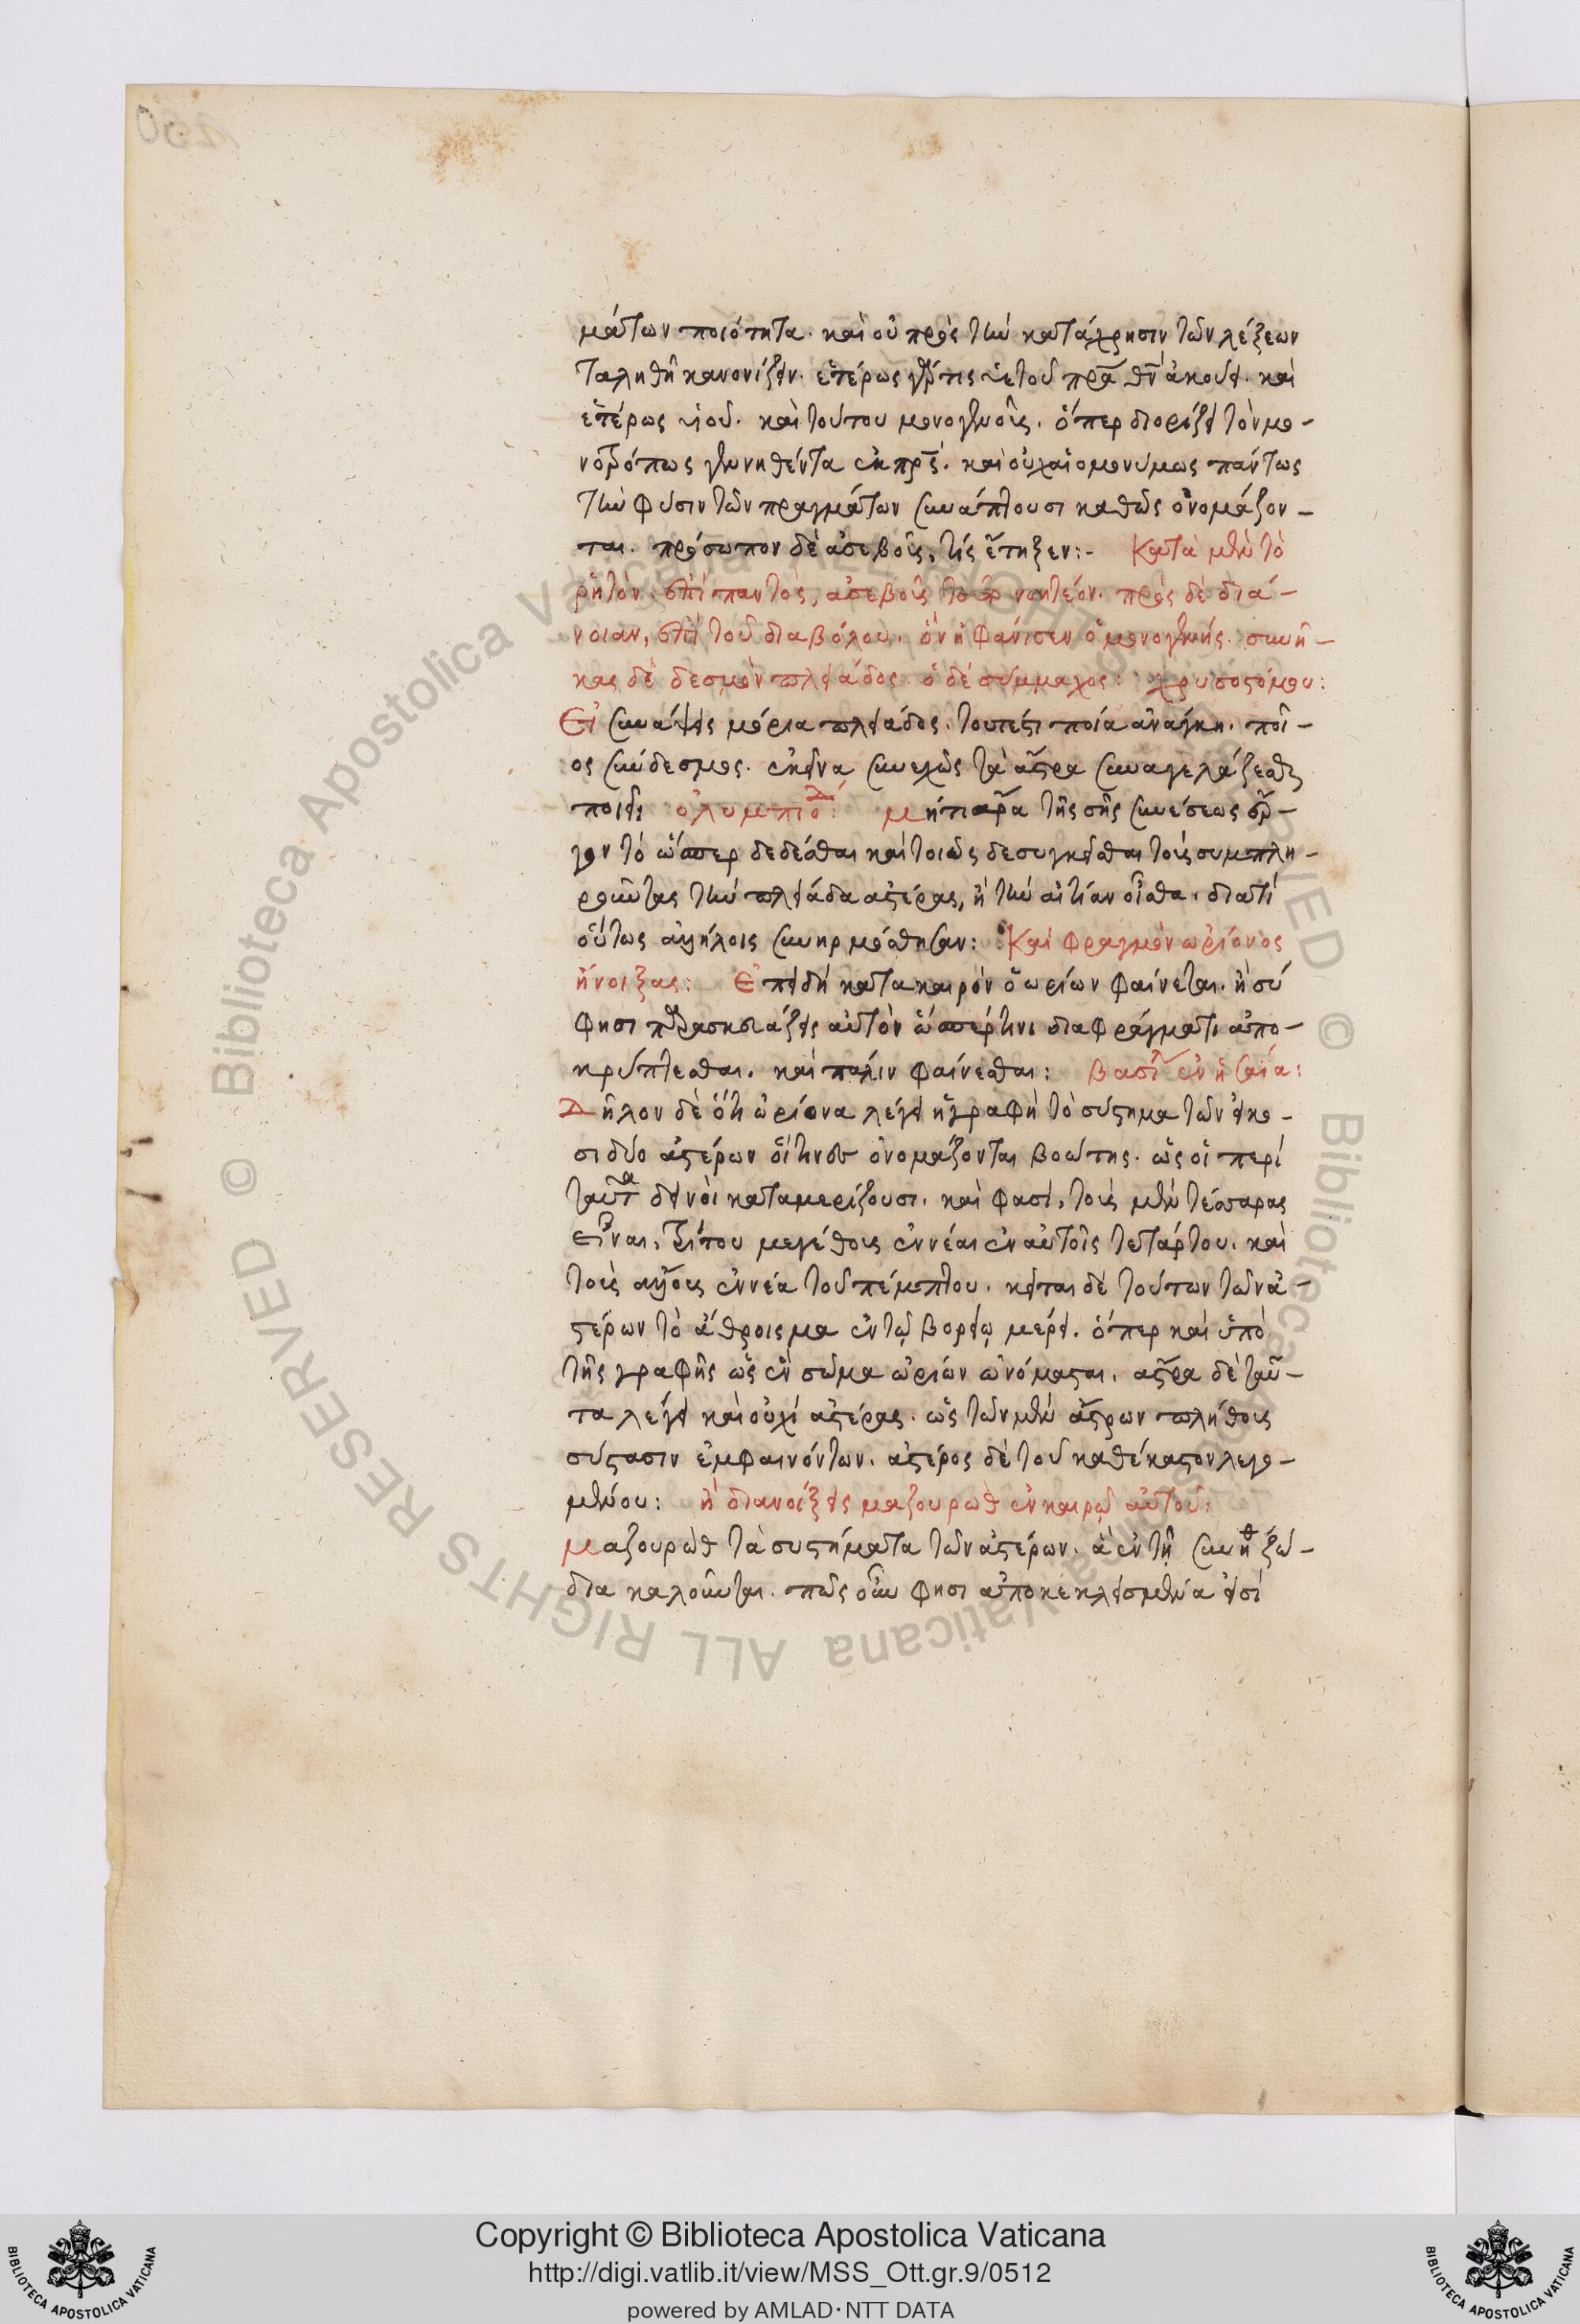 μάτων ποιότητα. καὶ οὐ πρὸς τὴν κατάχρησιν τῶν λέξεων
τἀληθῆ κανονίζειν. ἑτέρως γάρ τις ὑετοῦ πρα θν ἀκούει. καὶ
ἑτέρως υἱοῦ. καὶ τούτου μονογενοῦς. ὅπερ διορίζει τὸν μο-
νοτρόπως γεννηθέντα ἐκ πρς. καὶ οὐχ αἱ ὁμονύμως πάντως
τὴν φύσιν τῶν πραγμάτων συνάπτουσι καθὼς ὀνομάζον-
ται. πρόσωπον δὲ ἀσεβοῦς, τίς ἔτηξεν:- Κατὰ μὲν τὸ
ῥητὸν. ἐπὶ παντὸς, ἀσεβοῦς νοητέον. πρὸς δὲ διά-
νοιαν, ἐπὶ τοῦ διαβόλου. ὃν ἠφάνισεν ὁ μονογενής. συνῆ-
κας δὲ δεσμὸν πλειάδος. ὁ δὲ σύμμαχος: χρυσοστόμου:
Εἰ συνάψεις μόρια πλειάδος. τουτέστι ποία ἀνάγκη. ποῖ-
ος σύνδεσμος. ἐκεῖνα συνεχῶς τὰ ἄστρα συναγελάζεσθαι
ποιεῖ: ὀλυμπιοδ: μὴ παρα τῆς σῆς συνέσεως ἔρ-
γον τὸ ὥσπερ δεδέσθαι καὶ τοιῶς δε συγκεῖσθαι τοὺς συμπλη-
ροῦντας τὴν πλειάδα ἀστέρας, ἢ τὴν αἰτίαν οἶσθα. διατί
οὕτως ἀλλήλοις συνηρμόσθησαν: Καὶ φραγμὸν ὠρίονος
ἤνοιξας: Ἐπειδὴ κατα καιρὸν ὁ ὠρίων φαίνεται. ἢ σύ
φησι παρασκευάζεις αὐτὸν ὥσπέρ τινι διαφράγματι ἀπο-
κρύπτεσθαι. καὶ πάλιν φαίνεσθαι: βασιλ ἐν ἠσαΐα:
Δῆλον δὲ ὅτι ὠρίονα λέγει ἡ γραφὴ τὸ σύστημα τῶν εἰκο-
σι δύο ἀστέρων οἵτινες ὀνομάζονται βοώτης. ὡς οἱ περὶ
ταῦτα δεινοὶ καταμερίζουσι. καὶ φασὶ, τοὺς μὲν τέσσαρας
εἶναι, τρίτου μεγέθους ἐννέα ἐν αὐτοῖς τετάρτου. καὶ
τοὺς ἄλλους ἐννέα τοῦ πέμπτου. κεῖται δὲ τούτων τῶν ἀ-
στέρων τὸ ἄθροισμα ἐν τῷ βορείῳ μέρει. ὅπερ καὶ ὑπὸ
τῆς γραφῆς ὡς ἓν σῶμα ὠρίων ὠνόμασται. ἄστρα δὲ ταῦ-
τα λέγει καὶ οὐχὶ ἀστέρας. ὡς τῶν μὲν ἄστρων πλήθους
σύστασιν ἐμφαινόντων. ἀστέρος δὲ τοῦ καθέκαστον λεγο-
μένου: ἢ διανοίξεις μαζουρὼθ ἐν καιρῷ αὐτοῦ:
μαζουρὼθ τὰ συστήματα τῶν ἀστέρων. ἃ ἐν τῇ συνηθ ζώ-
δια καλοῦνται. πῶς οὖν φησι ἀποκεκλεισμένα εἰσὶ
Copyright © Biblioteca Apostolica Vaticana
http://digi.vatlib.it/view/MSS_Ott.gr.9/0512
powered by AMLAD·NTT DATA
BIBLIOTECA APOSTOLICA VATICANA
BIBLIOTECA APOSTOLICA VATICANA
© Biblioteca Apostolica Vaticana ALL RIGHTS RESERVED © Biblioteca Apostolica Vaticana ALL RIGHTS RESERVED